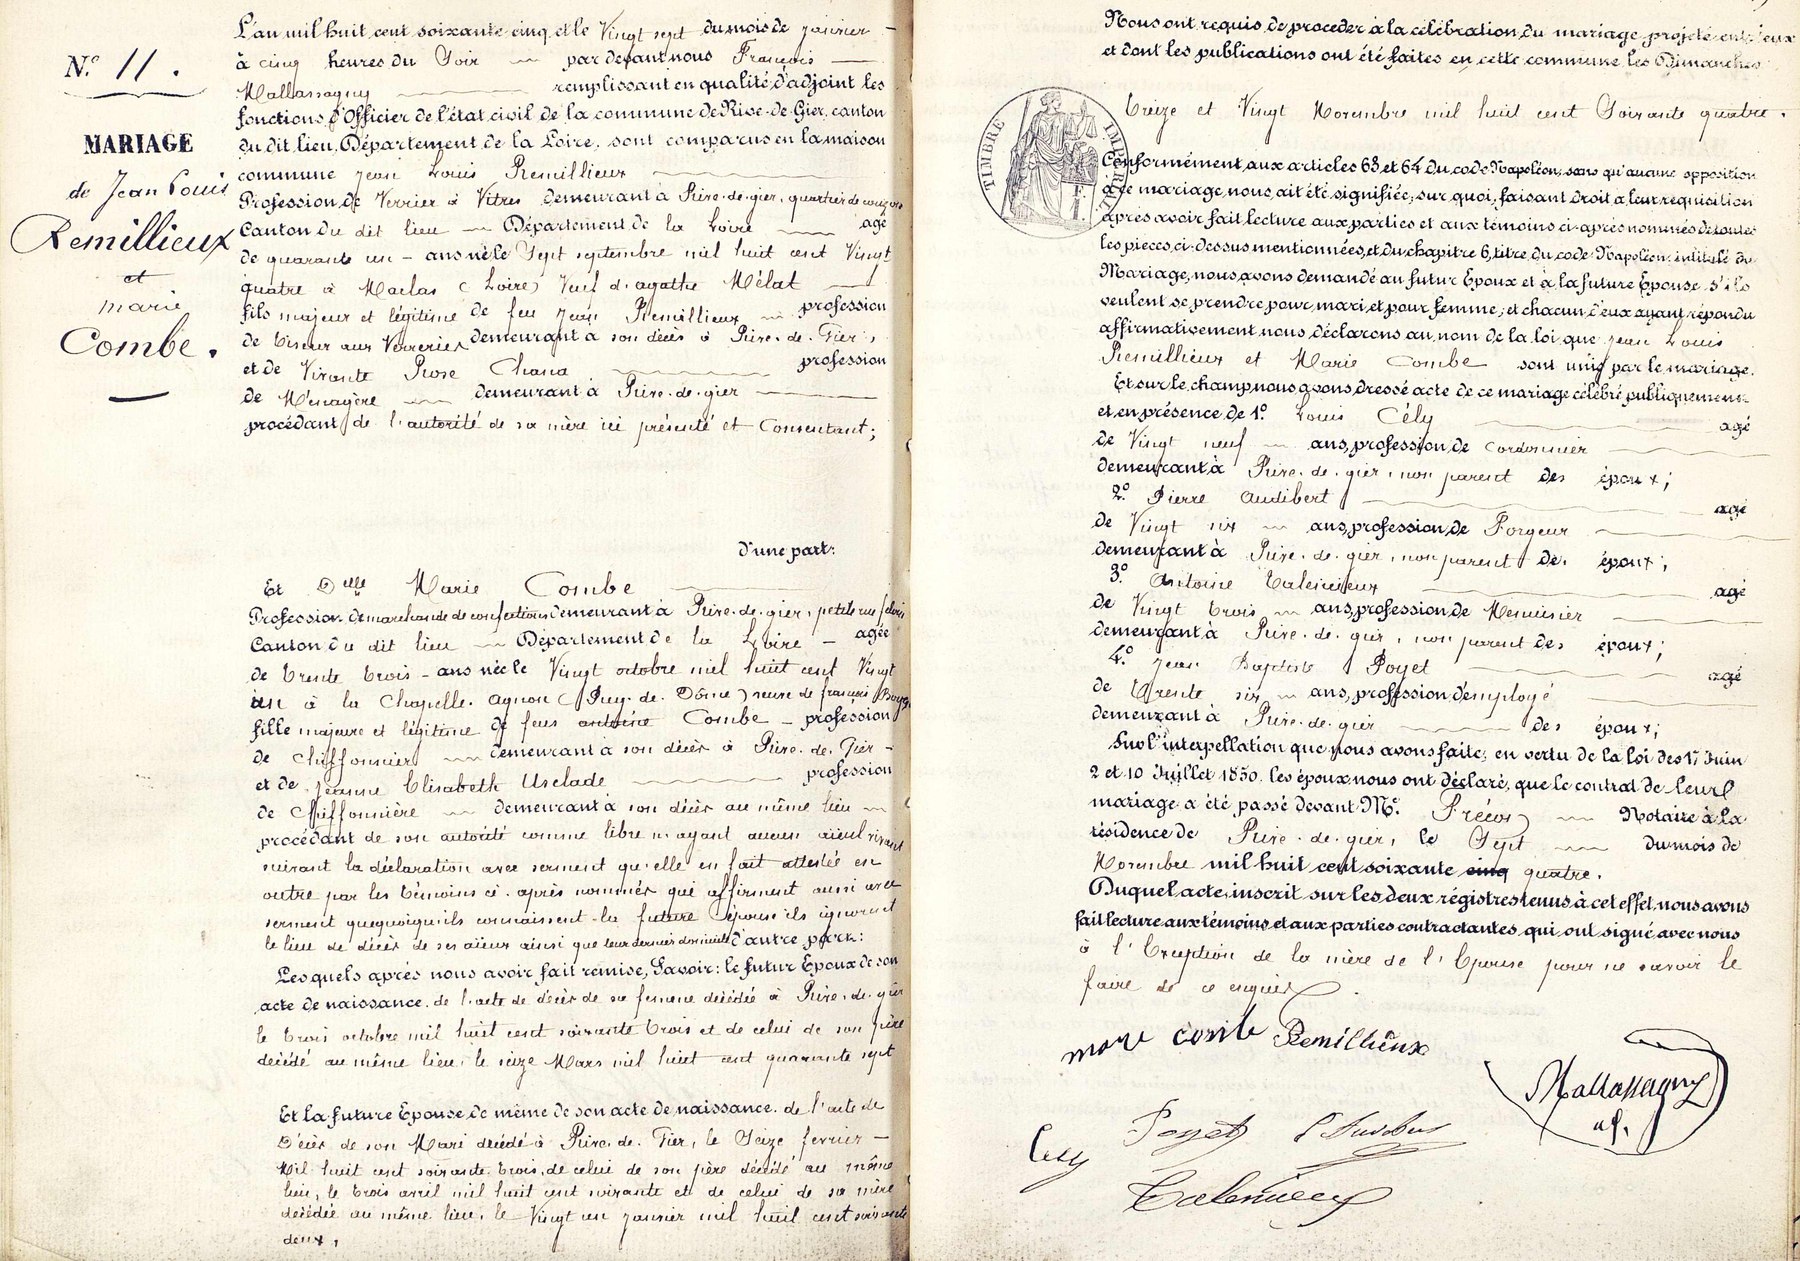 N.º 11.
MARIAGE
de Jean Louis
Remillieux
et
marie
Combe.
L'an mil huit cent soixante cinq et le Vingt sept du mois de janvier
à cinq heures du Soir par devant nous François
Mallassagny remplissant en qualité d'adjoint les
fonctions d'Officier de l'état civil de la commune de Rive-de-Gier, canton
du dit lieu, Département de la Loire, sont comparus en la maison
commune Jean Louis Remillieux
Profession de Verrier à Vitres demeurant à Rive-de-gier, quartier de
Canton du dit lieu Département de la Loire agé
de quarante un ans né le Sept septembre mil huit cent Vingt
quatre à Maclas (Loire) Veuf d'agathe Mélat
fils majeur et légitime de feu Jean Remillieux profession
de tiseur aux Verreries demeurant à son décès à Rive-de-Gier,
et de Vivante Rose Chana profession
de Ménagère demeurant à Rive-de-gier
procédant de l'autorité de sa mère ici présenté et Consentant;
d'une part:
Et Delle Marie Combe
Profession de marchande de confections demeurant à Rive-de-gier, petite rue
Canton du dit lieu Département de la Loire agée
de trente trois ans née le Vingt octobre mil huit cent Vingt
un à la Chapelle-Agnon (Puy-de-Dôme) veuve de françois
fille majeure et légitime de feus antoine Combe profession
de Chiffonnier demeurant à son décès à Rive-de-Gier
et de Jeanne Elisabeth Usclade profession
de Chiffonnière demeurant à son décès au même lieu
procédant de son autorité comme libre n'ayant aucun aïeul vivant
suivant la déclaration avec serment qu'elle en fait attestée en
outre par les témoins ci-après nommés qui affirment aussi avec
serment quequoiqu'ils connaissent la future épouse ils ignorent
le lieu de décès de ses aïeux ainsi que leur dernier domicile d'autre part:
Lesquels après nous avoir fait remise, Savoir: le futur Epoux de son
acte de naissance. de l'acte de décès de sa femme décédée à Rive-de-gier
le trois octobre mil huit cent soixante trois et de celui de son père
décédé au même lieu, le seize Mars mil huit cent quarante sept
Et la future Epouse, de même de son acte de naissance. de l'acte de
Décès de son Mari décédé à Rive-de-Gier, le Seize fevrier
Mil huit cent soixante trois, de celui de son père décédé au même
lieu, le trois avril mil huit cent soixante et de celui de sa mère
décédée au même lieu, le Vingt un janvier mil huit cent soixante
deux,
Nous ont requis de procéder à la célébration du mariage projeté entr'eux
et dont les publications ont été faites en cette commune les Dimanches
treize et Vingt Novembre mil huit cent Soixante quatre.
TIMBRE IMPERIAL
Conformément aux articles 63 et 64 du code Napoléon, sans qu'aucune opposition
à ce mariage nous ait été signifiée, sur quoi, faisant droit à leur requisition
après avoir fait lecture aux parties et aux témoins ci-après nommés de toutes
les pièces ci-dessus mentionnées, et du chapitre 6, titre du code Napoléon, intitulé du
Mariage, nous avons demandé au futur Epoux et à la future Epouse s'ils
veulent se prendre pour mari et pour femme; et chacun d'eux ayant répondu
affirmativement nous déclarons au nom de la loi que Jean Louis
Remillieux et Marie Combe sont unis par le mariage.
Et sur le champ nous avons dressé acte de ce mariage célébré publiquement
et en présence de 1º Louis Cély agé
de Vingt neuf ans, profession de Cordonnier
demeurant à Rive-de-gier, non parent des époux;
2º Pierre Audibert agé
de Vingt six ans, profession de Forgeur
demeurant à Rive-de-gier, non parent des époux;
3º Antoine Talencieux agé
de Vingt trois ans, profession de Menuisier
demeurant à Rive-de-gier, non parent des époux;
4º Jean Baptiste Poyet agé
de trente six ans, profession d'employé
demeurant à Rive-de-gier des époux;
Sur l'interpellation que nous avons faite, en vertu de la loi des 17 Juin
2 et 10 Juillet 1850. les époux nous ont déclaré, que le contrat de leur
mariage a été passé devant Me. Notaire à la
résidence de Rive-de-gier, le Sept du mois de
Novembre mil huit cent soixante cinq quatre.
Duquel acte, inscrit sur les deux régistres tenus à cet effet, nous avons
fait lecture aux témoins et aux parties contractantes, qui ont signé avec nous
à l'Exception de la mère de l'Epouse pour ne savoir le
faire de ce enquis.
Remillieux
Mallassagny
adj.
Poyet
Cely
Talencieux